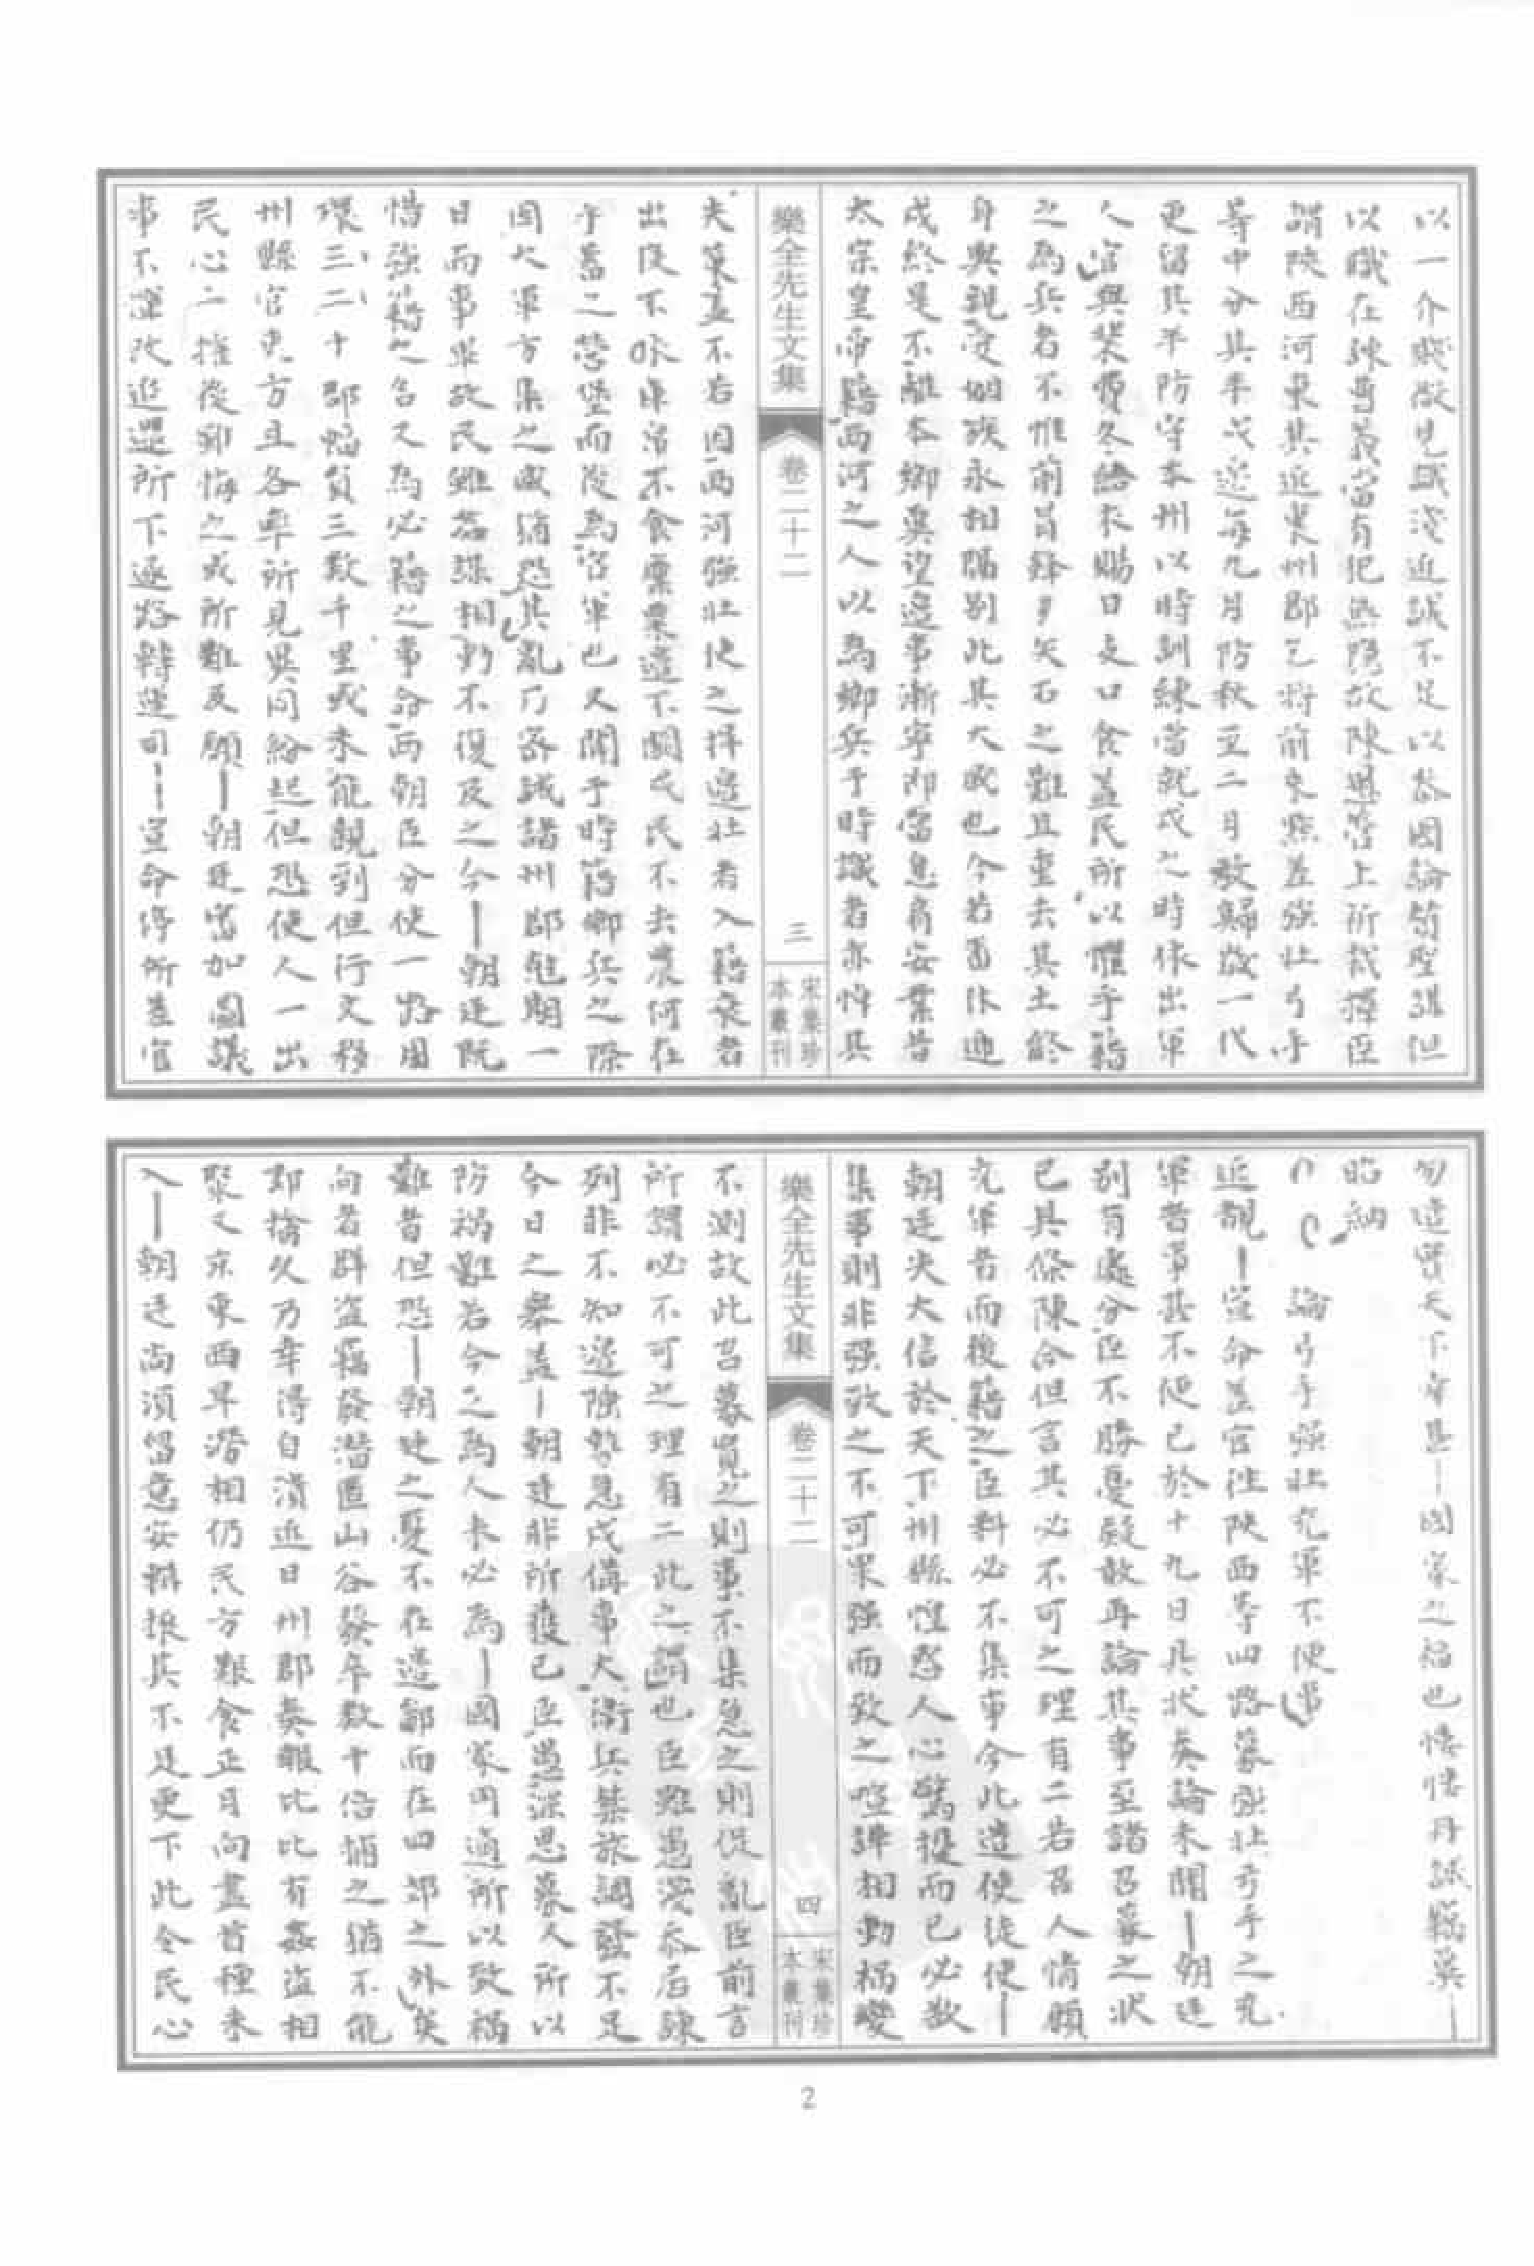 以一介賤微見識淺近誠不足以裨國論贊聖謀但
以職在諫爭義當有犯無隱故陳與管上所裁擇臣
請陝西河東其近裏州郡乞將前來點差強壯弓手
等中分其半戍邊每九月防秋至二月敢歸歲一代
更留其半防守本州以時訓練當就戍之時依出軍
人官與裝費冬給衣賜日支口食蓋民所以懼乎籍
之為兵者不惟前冒鋒刃矢石之難且重去其土終
身與親愛姻族永相隔別此其大戚也今若番休迴
戍終是不離本鄉異望邊事漸寧即當息肩安業昔
太宗皇帝籍兩河之人以為鄉兵于時議者亦惜其
樂全先生文集
卷二十二
三
宋集珍
本叢刊
失策蓋不若因兩河強壯使之捍邊壯者入籍衰者
出役不 庫帑不食廩粟邊不闕戍民不去農何在
乎蓄之營堡而後為官軍也又聞于時籍鄉兵之際
因大軍方集之威猶恐其亂乃密誡諸州郡剋期一
日而事畢故民雖 謀相動不復及之今 朝廷既
惜強籍之名又為必籍之事命兩朝臣分使一路周
環三二十郡幅員三數千里或未能親到但行文移
州縣官吏方且各率所見異同紛起但恐使人一出
民心二搖後卽悔之或所難及願 朝廷密加圖議
事不憚改追還所下逐路轉運司 宣命停所差官
勿遣實天下幸甚 國家之福也悽悽丹誠竊冀
昭納
論弓手強壯充軍不便事
近覩 宣命差官往陝西等四路募強壯弓手之充
軍者事甚不便已於十九日具狀奏論未聞 朝廷
別有處分臣不勝憂疑敢再論其事至諸召募之狀
已具條陳今但言其必不可之理有二若召人情願
充軍者而後籍之臣料必不集事今此遣使徒使
朝廷失大信於天下州縣惶惑人心驚擾而已必欲
集事則非强致之不可果强而致之喧譁相動禍變
樂全先生文集
卷二十二
四
宋集珍
本叢刊
不測故此召募寬之則事不集急之則從亂臣前言
所謂必不可之理有二此之謂也臣雖愚淺忝居諫
列非不知邊陲勢急戍備事大衛兵禁旅調發不足
今日之舉蓋 朝廷非所獲已臣愚深思慕人所以
防禍難若今之為人未必為 國家用適所以致禍
難昔但恐 朝廷之憂不在邊鄙而在四郊之外矣
向者群盜竊發潛匿山谷發卒數十倍捕之猶不能
即擒久乃幸得自潰近日州郡奏報比比有姦盜相
聚又京東西旱澇相仍民方艱食正月向盡首種未
入 朝廷尚須留意安輯振其不足更下此令民心
2